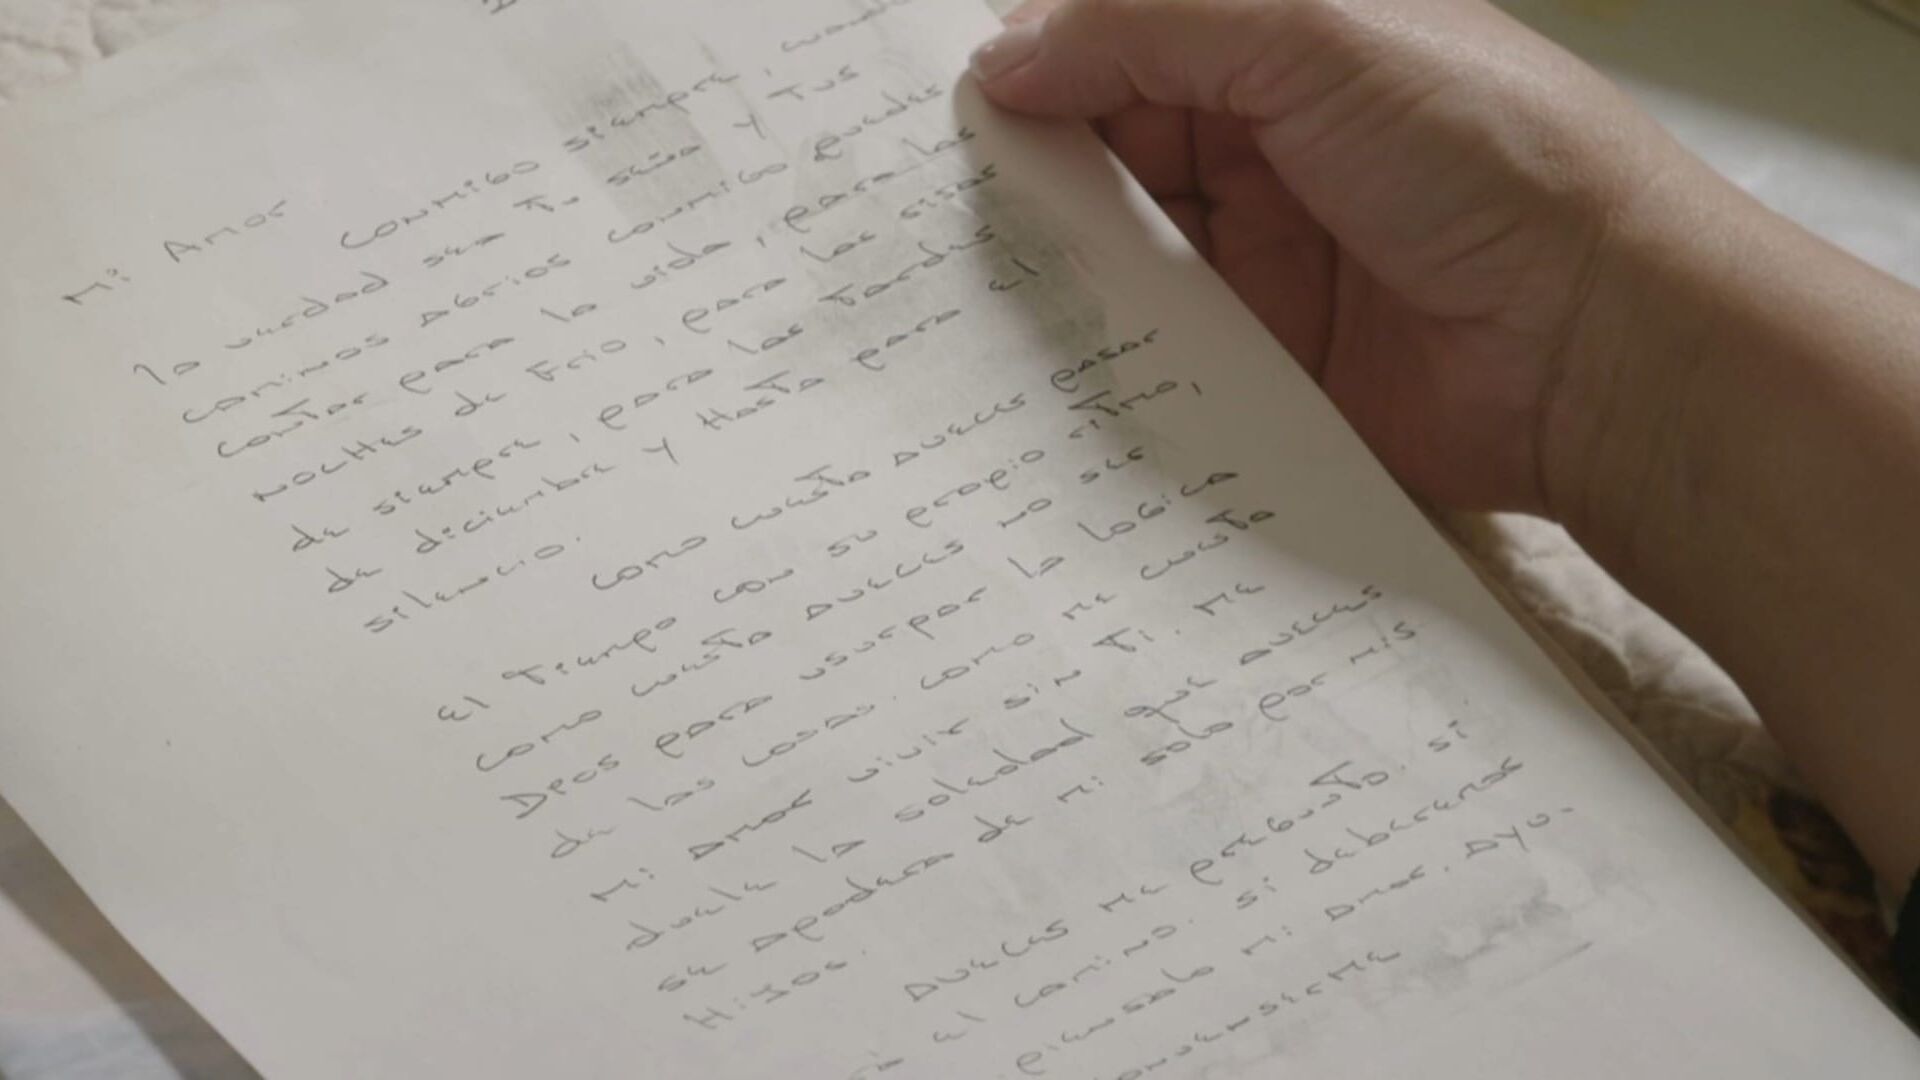 Mi Amor
Conmigo siempre,
la verdad sera tu seña y tus
caminos abrios conmigo puedes
contar para la vida, para las
noches de frio, para las risas
de siempre, para las tardes
de diciembre y Hasta para el
silencio.
como cuesta aveces pasar
el tiempo con su propio ritmo,
como cuesta aveces no ser
Dios para usurpar la logica
de las cosas. como me cuesta
mi amor vivir sin ti. me
duele la soledad que aveces
se apodera de mi solo por mis
Hijos.
aveces me pregunto. si
el camino. si deberemos
piensalo mi amor. ayu-